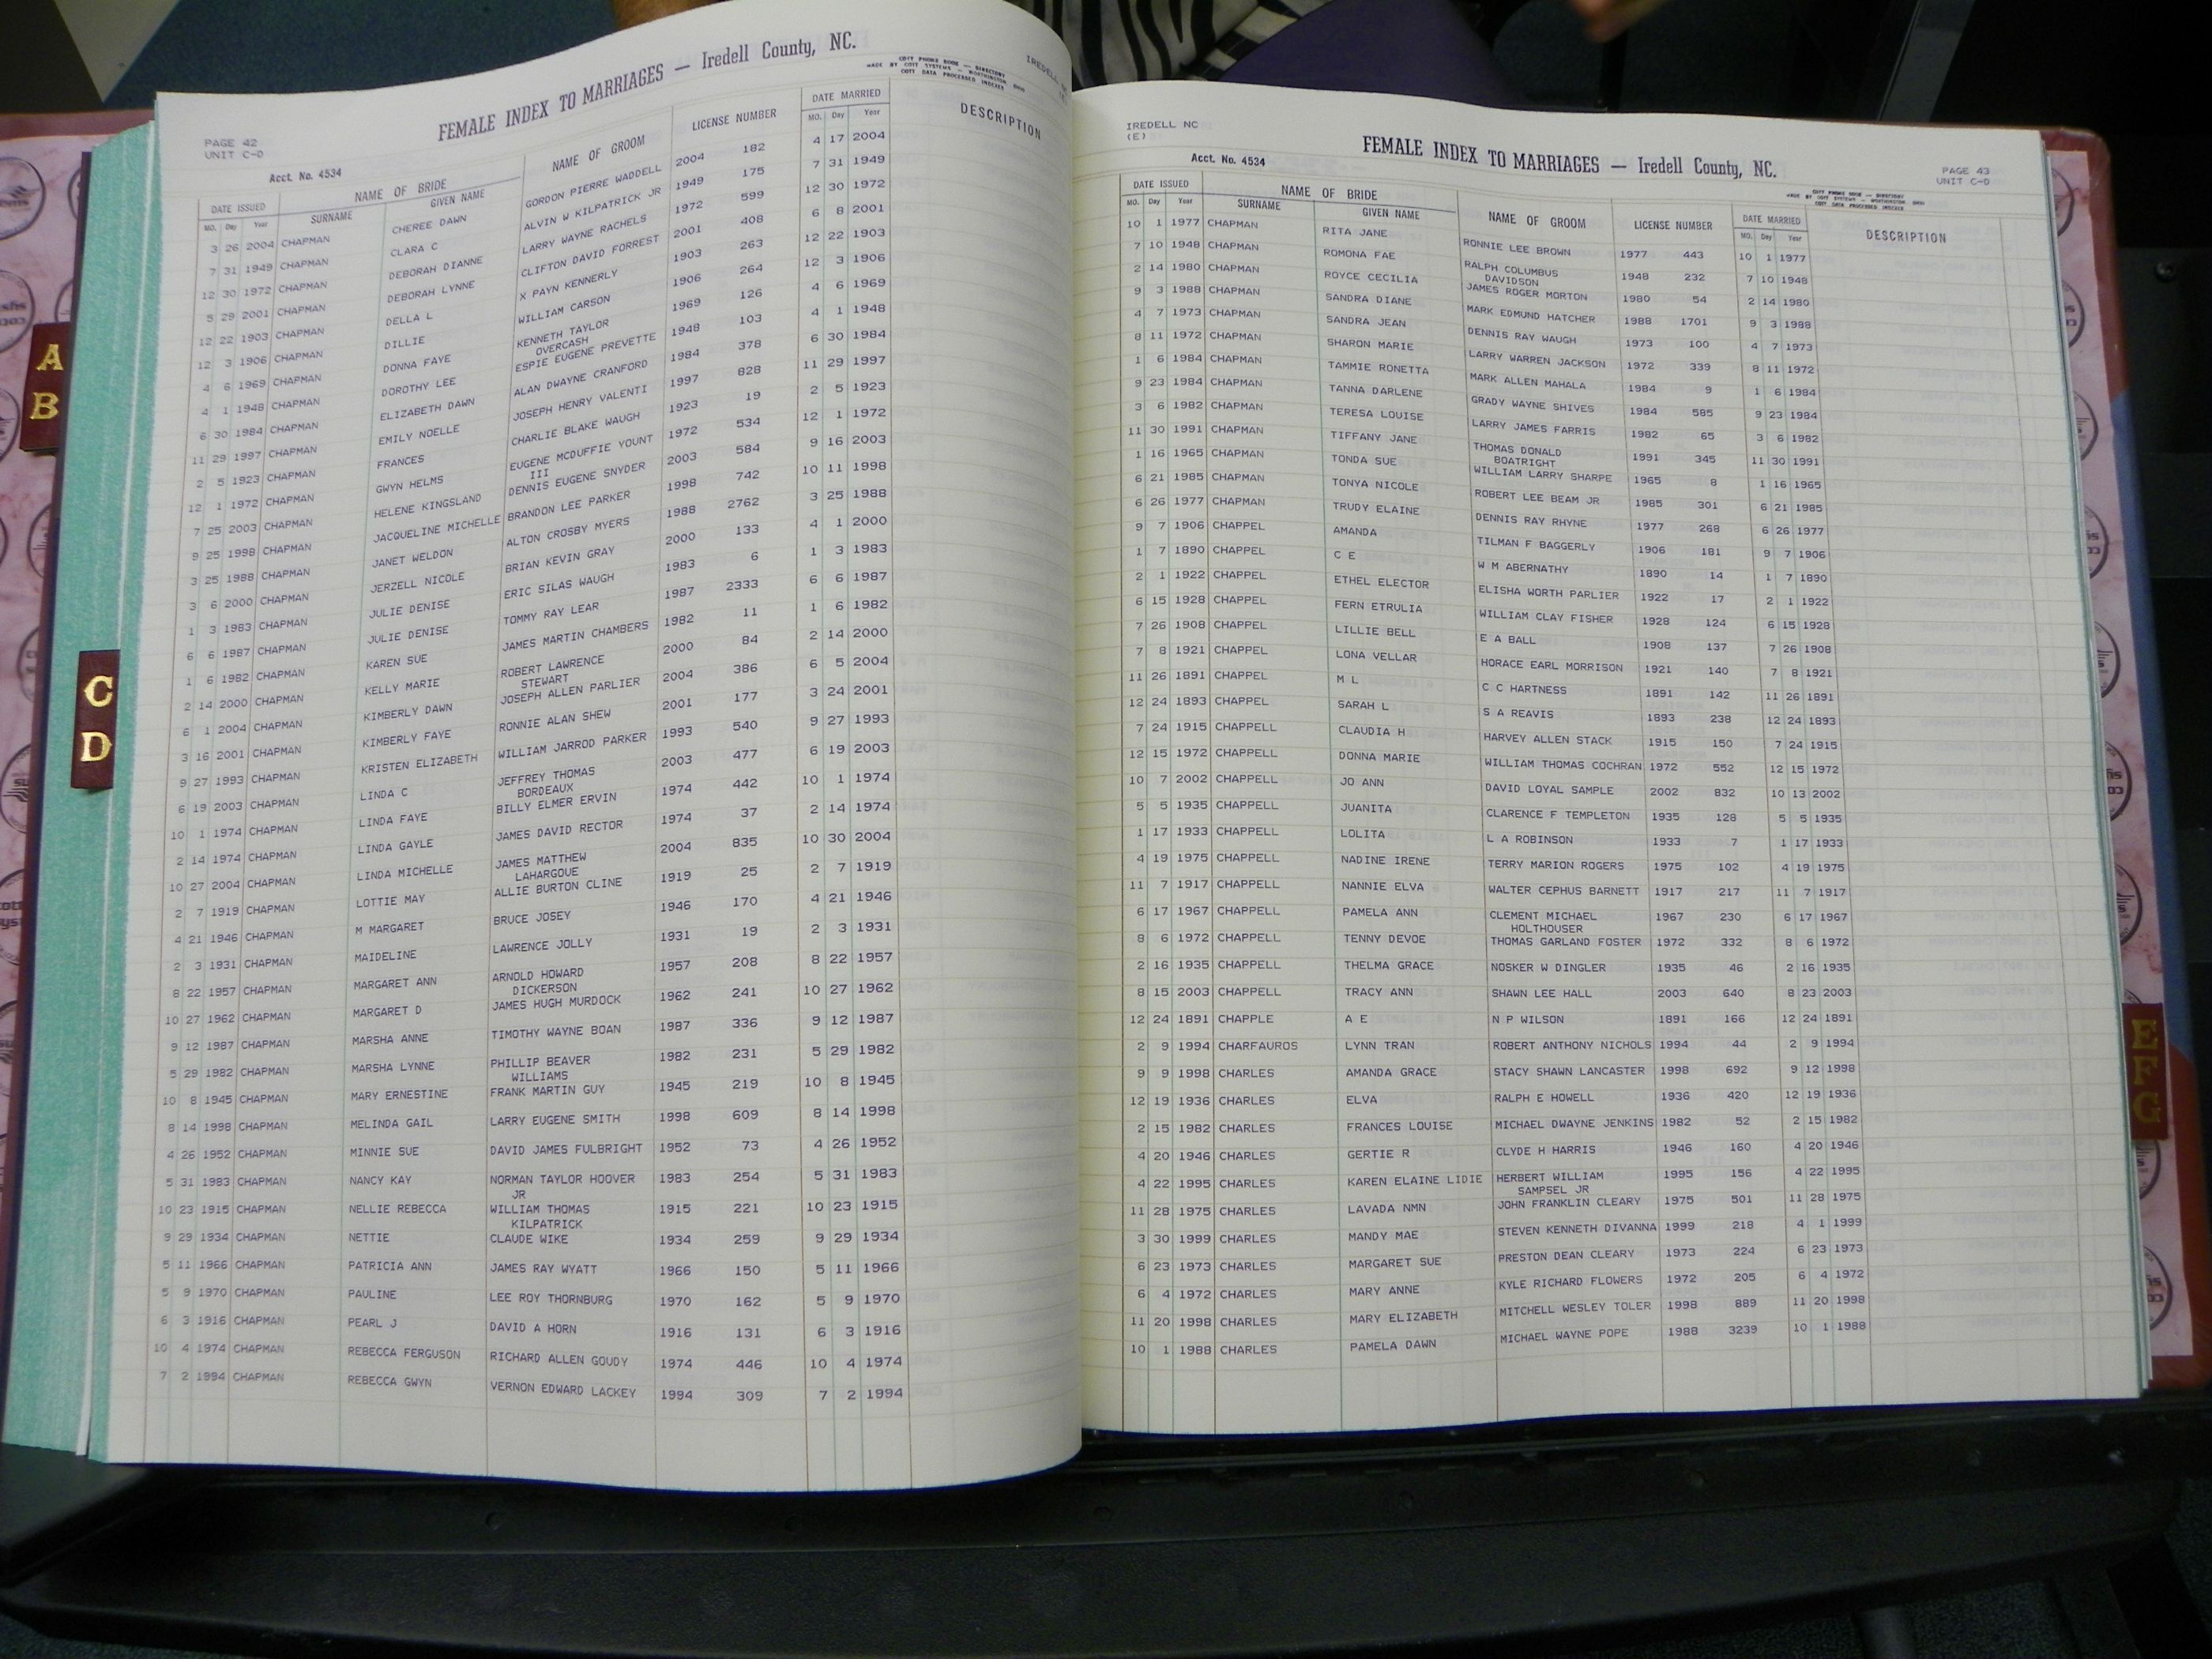 FEMALE INDEX TO MARRIAGES — Iredell County, NC.
PAGE 42
UNIT C-D
Acct. No. 4534
COTT PHONE BOOK — DIRECTORY
MADE BY COTT SYSTEMS — WORTHINGTON OHIO
COTT DATA PROCESSED INDEXES
DATE ISSUED NAME OF BRIDE NAME OF GROOM LICENSE NUMBER DATE MARRIED DESCRIPTION
MO. Day Year SURNAME GIVEN NAME MO. Day Year
3 26 2004 CHAPMAN CHEREE DAWN GORDON PIERRE WADDELL 2004 182 4 17 2004
7 31 1949 CHAPMAN CLARA C ALVIN W KILPATRICK JR 1949 175 7 31 1949
12 30 1972 CHAPMAN DEBORAH DIANNE LARRY WAYNE RACHELS 1972 599 12 30 1972
5 29 2001 CHAPMAN DEBORAH LYNNE CLIFTON DAVID FORREST 2001 408 6 8 2001
12 22 1903 CHAPMAN DELLA L X PAYN KENNERLY 1903 263 12 22 1903
12 3 1906 CHAPMAN DILLIE WILLIAM CARSON 1906 264 12 3 1906
4 6 1969 CHAPMAN DONNA FAYE KENNETH TAYLOR 1969 126 4 6 1969
OVERCASH
4 1 1948 CHAPMAN DOROTHY LEE ESPIE EUGENE PREVETTE 1948 103 4 1 1948
6 30 1984 CHAPMAN ELIZABETH DAWN ALAN DWAYNE CRANFORD 1984 378 6 30 1984
11 29 1997 CHAPMAN EMILY NOELLE JOSEPH HENRY VALENTI 1997 828 11 29 1997
2 5 1923 CHAPMAN FRANCES CHARLIE BLAKE WAUGH 1923 19 2 5 1923
12 1 1972 CHAPMAN GWYN HELMS EUGENE MCDUFFIE YOUNT 1972 534 12 1 1972
III
7 25 2003 CHAPMAN HELENE KINGSLAND DENNIS EUGENE SNYDER 2003 584 9 16 2003
9 25 1998 CHAPMAN JACQUELINE MICHELLE BRANDON LEE PARKER 1998 742 10 11 1998
3 25 1988 CHAPMAN JANET WELDON ALTON CROSBY MYERS 1988 2762 3 25 1988
3 6 2000 CHAPMAN JERZELL NICOLE BRIAN KEVIN GRAY 2000 133 4 1 2000
1 3 1983 CHAPMAN JULIE DENISE ERIC SILAS WAUGH 1983 6 1 3 1983
6 6 1987 CHAPMAN JULIE DENISE TOMMY RAY LEAR 1987 2333 6 6 1987
1 6 1982 CHAPMAN KAREN SUE JAMES MARTIN CHAMBERS 1982 11 1 6 1982
2 14 2000 CHAPMAN KELLY MARIE ROBERT LAWRENCE 2000 84 2 14 2000
STEWART
6 1 2004 CHAPMAN KIMBERLY DAWN JOSEPH ALLEN PARLIER 2004 386 6 5 2004
3 16 2001 CHAPMAN KIMBERLY FAYE RONNIE ALAN SHEW 2001 177 3 24 2001
9 27 1993 CHAPMAN KRISTEN ELIZABETH WILLIAM JARROD PARKER 1993 540 9 27 1993
6 19 2003 CHAPMAN LINDA C JEFFREY THOMAS 2003 477 6 19 2003
BORDEAUX
10 1 1974 CHAPMAN LINDA FAYE BILLY ELMER ERVIN 1974 442 10 1 1974
2 14 1974 CHAPMAN LINDA GAYLE JAMES DAVID RECTOR 1974 37 2 14 1974
10 27 2004 CHAPMAN LINDA MICHELLE JAMES MATTHEW 2004 835 10 30 2004
LAHARGOUE
2 7 1919 CHAPMAN LOTTIE MAY ALLIE BURTON CLINE 1919 25 2 7 1919
4 21 1946 CHAPMAN M MARGARET BRUCE JOSEY 1946 170 4 21 1946
2 3 1931 CHAPMAN MAIDELINE LAWRENCE JOLLY 1931 19 2 3 1931
8 22 1957 CHAPMAN MARGARET ANN ARNOLD HOWARD 1957 208 8 22 1957
DICKERSON
10 27 1962 CHAPMAN MARGARET D JAMES HUGH MURDOCK 1962 241 10 27 1962
9 12 1987 CHAPMAN MARSHA ANNE TIMOTHY WAYNE BOAN 1987 336 9 12 1987
5 29 1982 CHAPMAN MARSHA LYNNE PHILLIP BEAVER 1982 231 5 29 1982
WILLIAMS
10 8 1945 CHAPMAN MARY ERNESTINE FRANK MARTIN GUY 1945 219 10 8 1945
8 14 1998 CHAPMAN MELINDA GAIL LARRY EUGENE SMITH 1998 609 8 14 1998
4 26 1952 CHAPMAN MINNIE SUE DAVID JAMES FULBRIGHT 1952 73 4 26 1952
5 31 1983 CHAPMAN NANCY KAY NORMAN TAYLOR HOOVER 1983 254 5 31 1983
JR
10 23 1915 CHAPMAN NELLIE REBECCA WILLIAM THOMAS 1915 221 10 23 1915
KILPATRICK
9 29 1934 CHAPMAN NETTIE CLAUDE WIKE 1934 259 9 29 1934
5 11 1966 CHAPMAN PATRICIA ANN JAMES RAY WYATT 1966 150 5 11 1966
5 9 1970 CHAPMAN PAULINE LEE ROY THORNBURG 1970 162 5 9 1970
6 3 1916 CHAPMAN PEARL J DAVID A HORN 1916 131 6 3 1916
10 4 1974 CHAPMAN REBECCA FERGUSON RICHARD ALLEN GOUDY 1974 446 10 4 1974
7 2 1994 CHAPMAN REBECCA GWYN VERNON EDWARD LACKEY 1994 309 7 2 1994
IREDELL NC
(E)
Acct. No. 4534
FEMALE INDEX TO MARRIAGES — Iredell County, NC.
PAGE 43
UNIT C-D
COTT PHONE BOOK — DIRECTORY
MADE BY COTT SYSTEMS — WORTHINGTON OHIO
COTT DATA PROCESSED INDEXES
DATE ISSUED NAME OF BRIDE NAME OF GROOM LICENSE NUMBER DATE MARRIED DESCRIPTION
MO. Day Year SURNAME GIVEN NAME MO. Day Year
10 1 1977 CHAPMAN RITA JANE RONNIE LEE BROWN 1977 443 10 1 1977
7 10 1948 CHAPMAN ROMONA FAE RALPH COLUMBUS 1948 232 7 10 1948
DAVIDSON
2 14 1980 CHAPMAN ROYCE CECILIA JAMES ROGER MORTON 1980 54 2 14 1980
9 3 1988 CHAPMAN SANDRA DIANE MARK EDMUND HATCHER 1988 1701 9 3 1988
4 7 1973 CHAPMAN SANDRA JEAN DENNIS RAY WAUGH 1973 100 4 7 1973
8 11 1972 CHAPMAN SHARON MARIE LARRY WARREN JACKSON 1972 339 8 11 1972
1 6 1984 CHAPMAN TAMMIE RONETTA MARK ALLEN MAHALA 1984 9 1 6 1984
9 23 1984 CHAPMAN TANNA DARLENE GRADY WAYNE SHIVES 1984 585 9 23 1984
3 6 1982 CHAPMAN TERESA LOUISE LARRY JAMES FARRIS 1982 65 3 6 1982
11 30 1991 CHAPMAN TIFFANY JANE THOMAS DONALD 1991 345 11 30 1991
BOATRIGHT
1 16 1965 CHAPMAN TONDA SUE WILLIAM LARRY SHARPE 1965 8 1 16 1965
6 21 1985 CHAPMAN TONYA NICOLE ROBERT LEE BEAM JR 1985 301 6 21 1985
6 26 1977 CHAPMAN TRUDY ELAINE DENNIS RAY RHYNE 1977 268 6 26 1977
9 7 1906 CHAPPEL AMANDA TILMAN F BAGGERLY 1906 181 9 7 1906
1 7 1890 CHAPPEL C E W M ABERNATHY 1890 14 1 7 1890
2 1 1922 CHAPPEL ETHEL ELECTOR ELISHA WORTH PARLIER 1922 17 2 1 1922
6 15 1928 CHAPPEL FERN ETRULIA WILLIAM CLAY FISHER 1928 124 6 15 1928
7 26 1908 CHAPPEL LILLIE BELL E A BALL 1908 137 7 26 1908
7 8 1921 CHAPPEL LONA VELLAR HORACE EARL MORRISON 1921 140 7 8 1921
11 26 1891 CHAPPEL M L C C HARTNESS 1891 142 11 26 1891
12 24 1893 CHAPPEL SARAH L S A REAVIS 1893 238 12 24 1893
7 24 1915 CHAPPELL CLAUDIA H HARVEY ALLEN STACK 1915 150 7 24 1915
12 15 1972 CHAPPELL DONNA MARIE WILLIAM THOMAS COCHRAN 1972 552 12 15 1972
10 7 2002 CHAPPELL JO ANN DAVID LOYAL SAMPLE 2002 832 10 13 2002
5 5 1935 CHAPPELL JUANITA CLARENCE F TEMPLETON 1935 128 5 5 1935
1 17 1933 CHAPPELL LOLITA L A ROBINSON 1933 7 1 17 1933
4 19 1975 CHAPPELL NADINE IRENE TERRY MARION ROGERS 1975 102 4 19 1975
11 7 1917 CHAPPELL NANNIE ELVA WALTER CEPHUS BARNETT 1917 217 11 7 1917
6 17 1967 CHAPPELL PAMELA ANN CLEMENT MICHAEL 1967 230 6 17 1967
HOLTHOUSER
8 6 1972 CHAPPELL TENNY DEVOE THOMAS GARLAND FOSTER 1972 332 8 6 1972
2 16 1935 CHAPPELL THELMA GRACE NOSKER W DINGLER 1935 46 2 16 1935
8 15 2003 CHAPPELL TRACY ANN SHAWN LEE HALL 2003 640 8 23 2003
12 24 1891 CHAPPLE A E N P WILSON 1891 166 12 24 1891
2 9 1994 CHARFAUROS LYNN TRAN ROBERT ANTHONY NICHOLS 1994 44 2 9 1994
9 9 1998 CHARLES AMANDA GRACE STACY SHAWN LANCASTER 1998 692 9 12 1998
12 19 1936 CHARLES ELVA RALPH E HOWELL 1936 420 12 19 1936
2 15 1982 CHARLES FRANCES LOUISE MICHAEL DWAYNE JENKINS 1982 52 2 15 1982
4 20 1946 CHARLES GERTIE R CLYDE H HARRIS 1946 160 4 20 1946
4 22 1995 CHARLES KAREN ELAINE LIDIE HERBERT WILLIAM 1995 156 4 22 1995
SAMPSEL JR
11 28 1975 CHARLES LAVADA NMN JOHN FRANKLIN CLEARY 1975 501 11 28 1975
3 30 1999 CHARLES MANDY MAE STEVEN KENNETH DIVANNA 1999 218 4 1 1999
6 23 1973 CHARLES MARGARET SUE PRESTON DEAN CLEARY 1973 224 6 23 1973
6 4 1972 CHARLES MARY ANNE KYLE RICHARD FLOWERS 1972 205 6 4 1972
11 20 1998 CHARLES MARY ELIZABETH MITCHELL WESLEY TOLER 1998 889 11 20 1998
10 1 1988 CHARLES PAMELA DAWN MICHAEL WAYNE POPE 1988 3239 10 1 1988
A
B
C
D
E
F
G